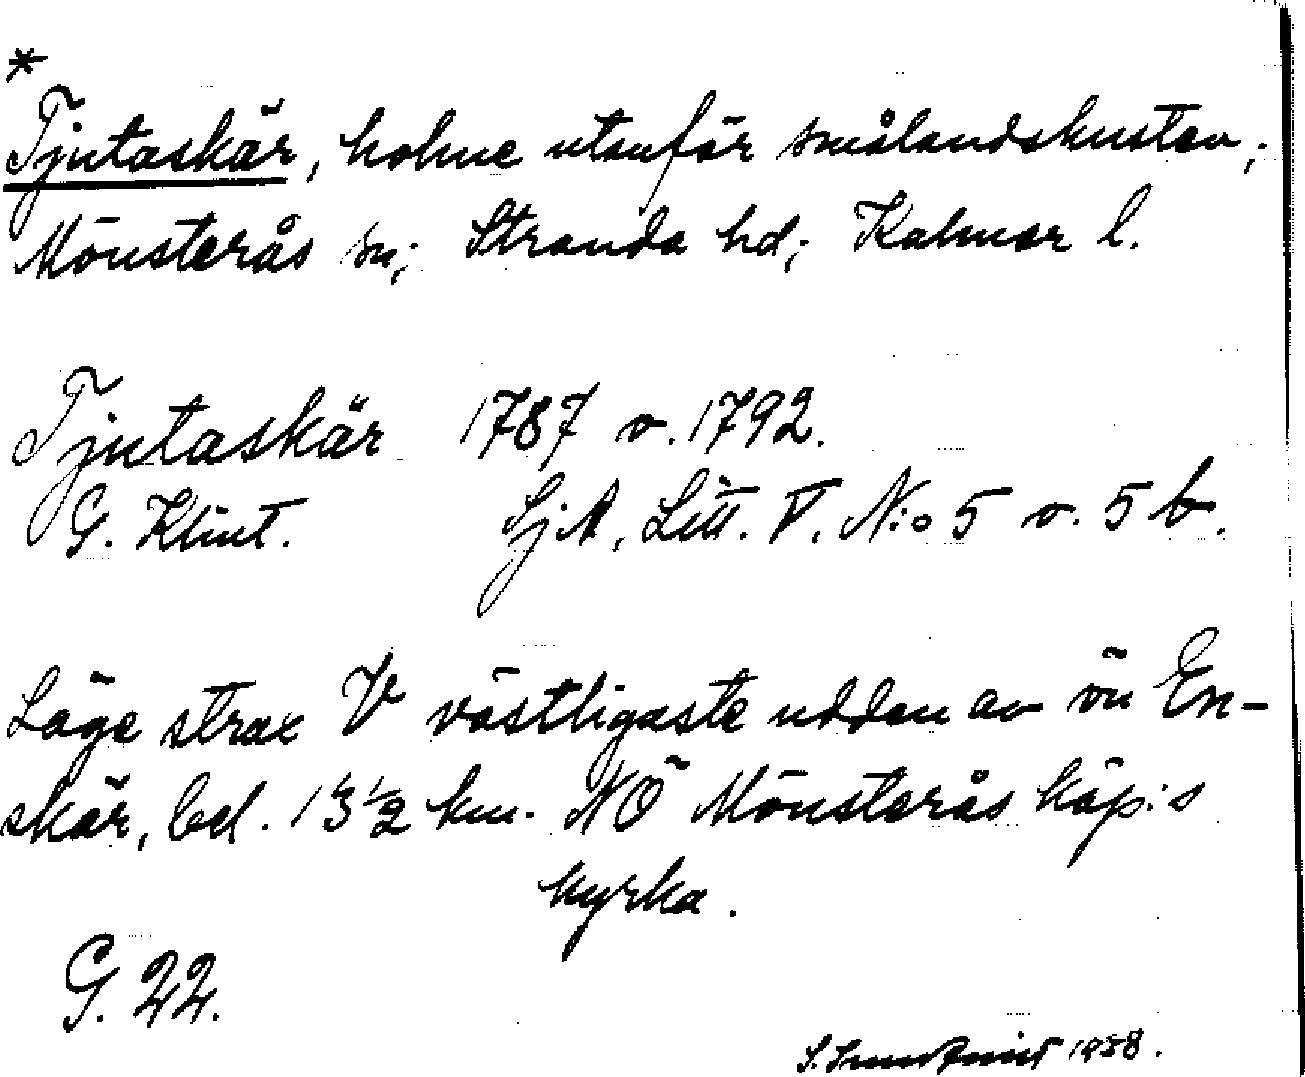 *
Tjutaskär, holme utanför smålandskusten,;
Mönsterås sn; Stranda hd; Kalmar l.
Tjutaskär 1787 o. 1792.
G. Klint. SjA, Litt. V. N:o 5 o. 5 b.
Läge strax V västligaste udden av ön En-
skär, bel. 13 1/2 km. NÖ Mönsterås köp:s
kyrka.
G. 22.
S. 1958.